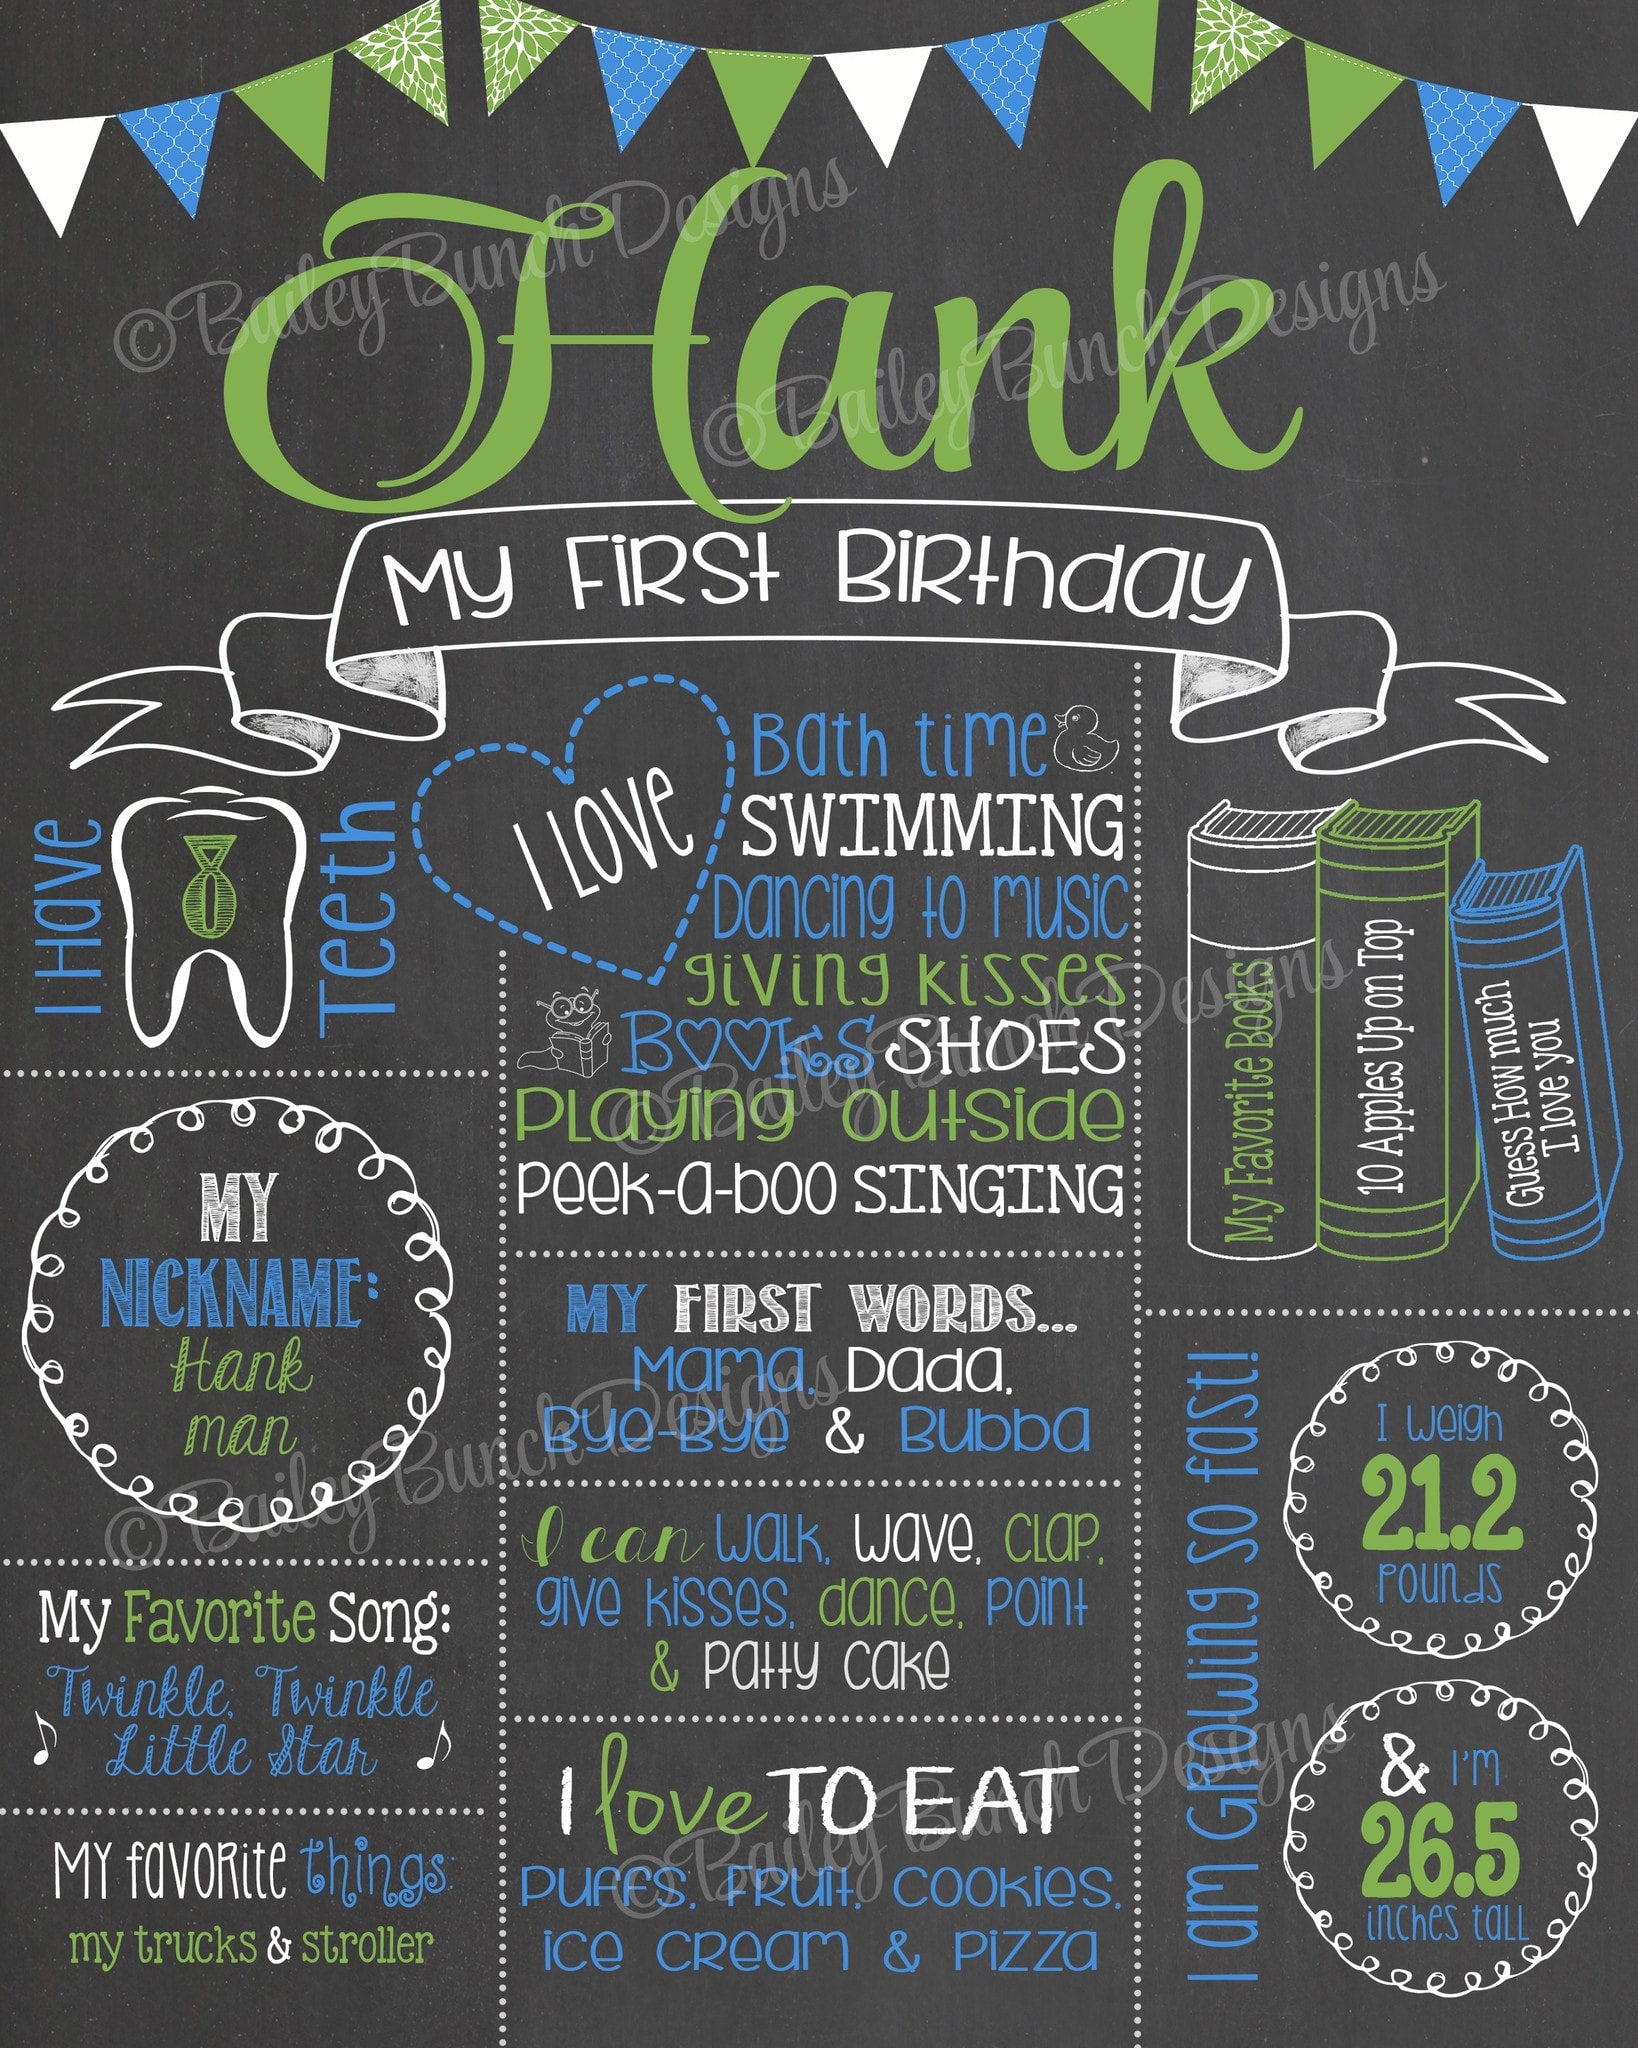 Hank
My First Birthday
I Have
0
Teeth
I LOVE
Bath time
SWIMMING
Dancing to music
giving kisses
BOOKS SHOES
Playing outside
Peek-a-boo SINGING
My Favorite Books
10 Apples Up on Top
Guess How much
I love you
MY
NICKNAME:
Hank
man
MY FIRST WORDS...
Mama, Dada,
Bye-Bye & Bubba
I can walk, wave, clap,
give kisses, dance, point
& patty cake
My Favorite Song:
Twinkle, Twinkle
Little Star
My favorite things:
my trucks & stroller
I love TO EAT
Puffs, Fruit, Cookies,
ice cream & pizza
I am Growing so fast!
I weigh
21.2
pounds
& I'm
26.5
inches tall
©Bailey Bunch Designs
©Bailey Bunch Designs
©Bailey Bunch Designs
©Bailey Bunch Designs
©Bailey Bunch Designs